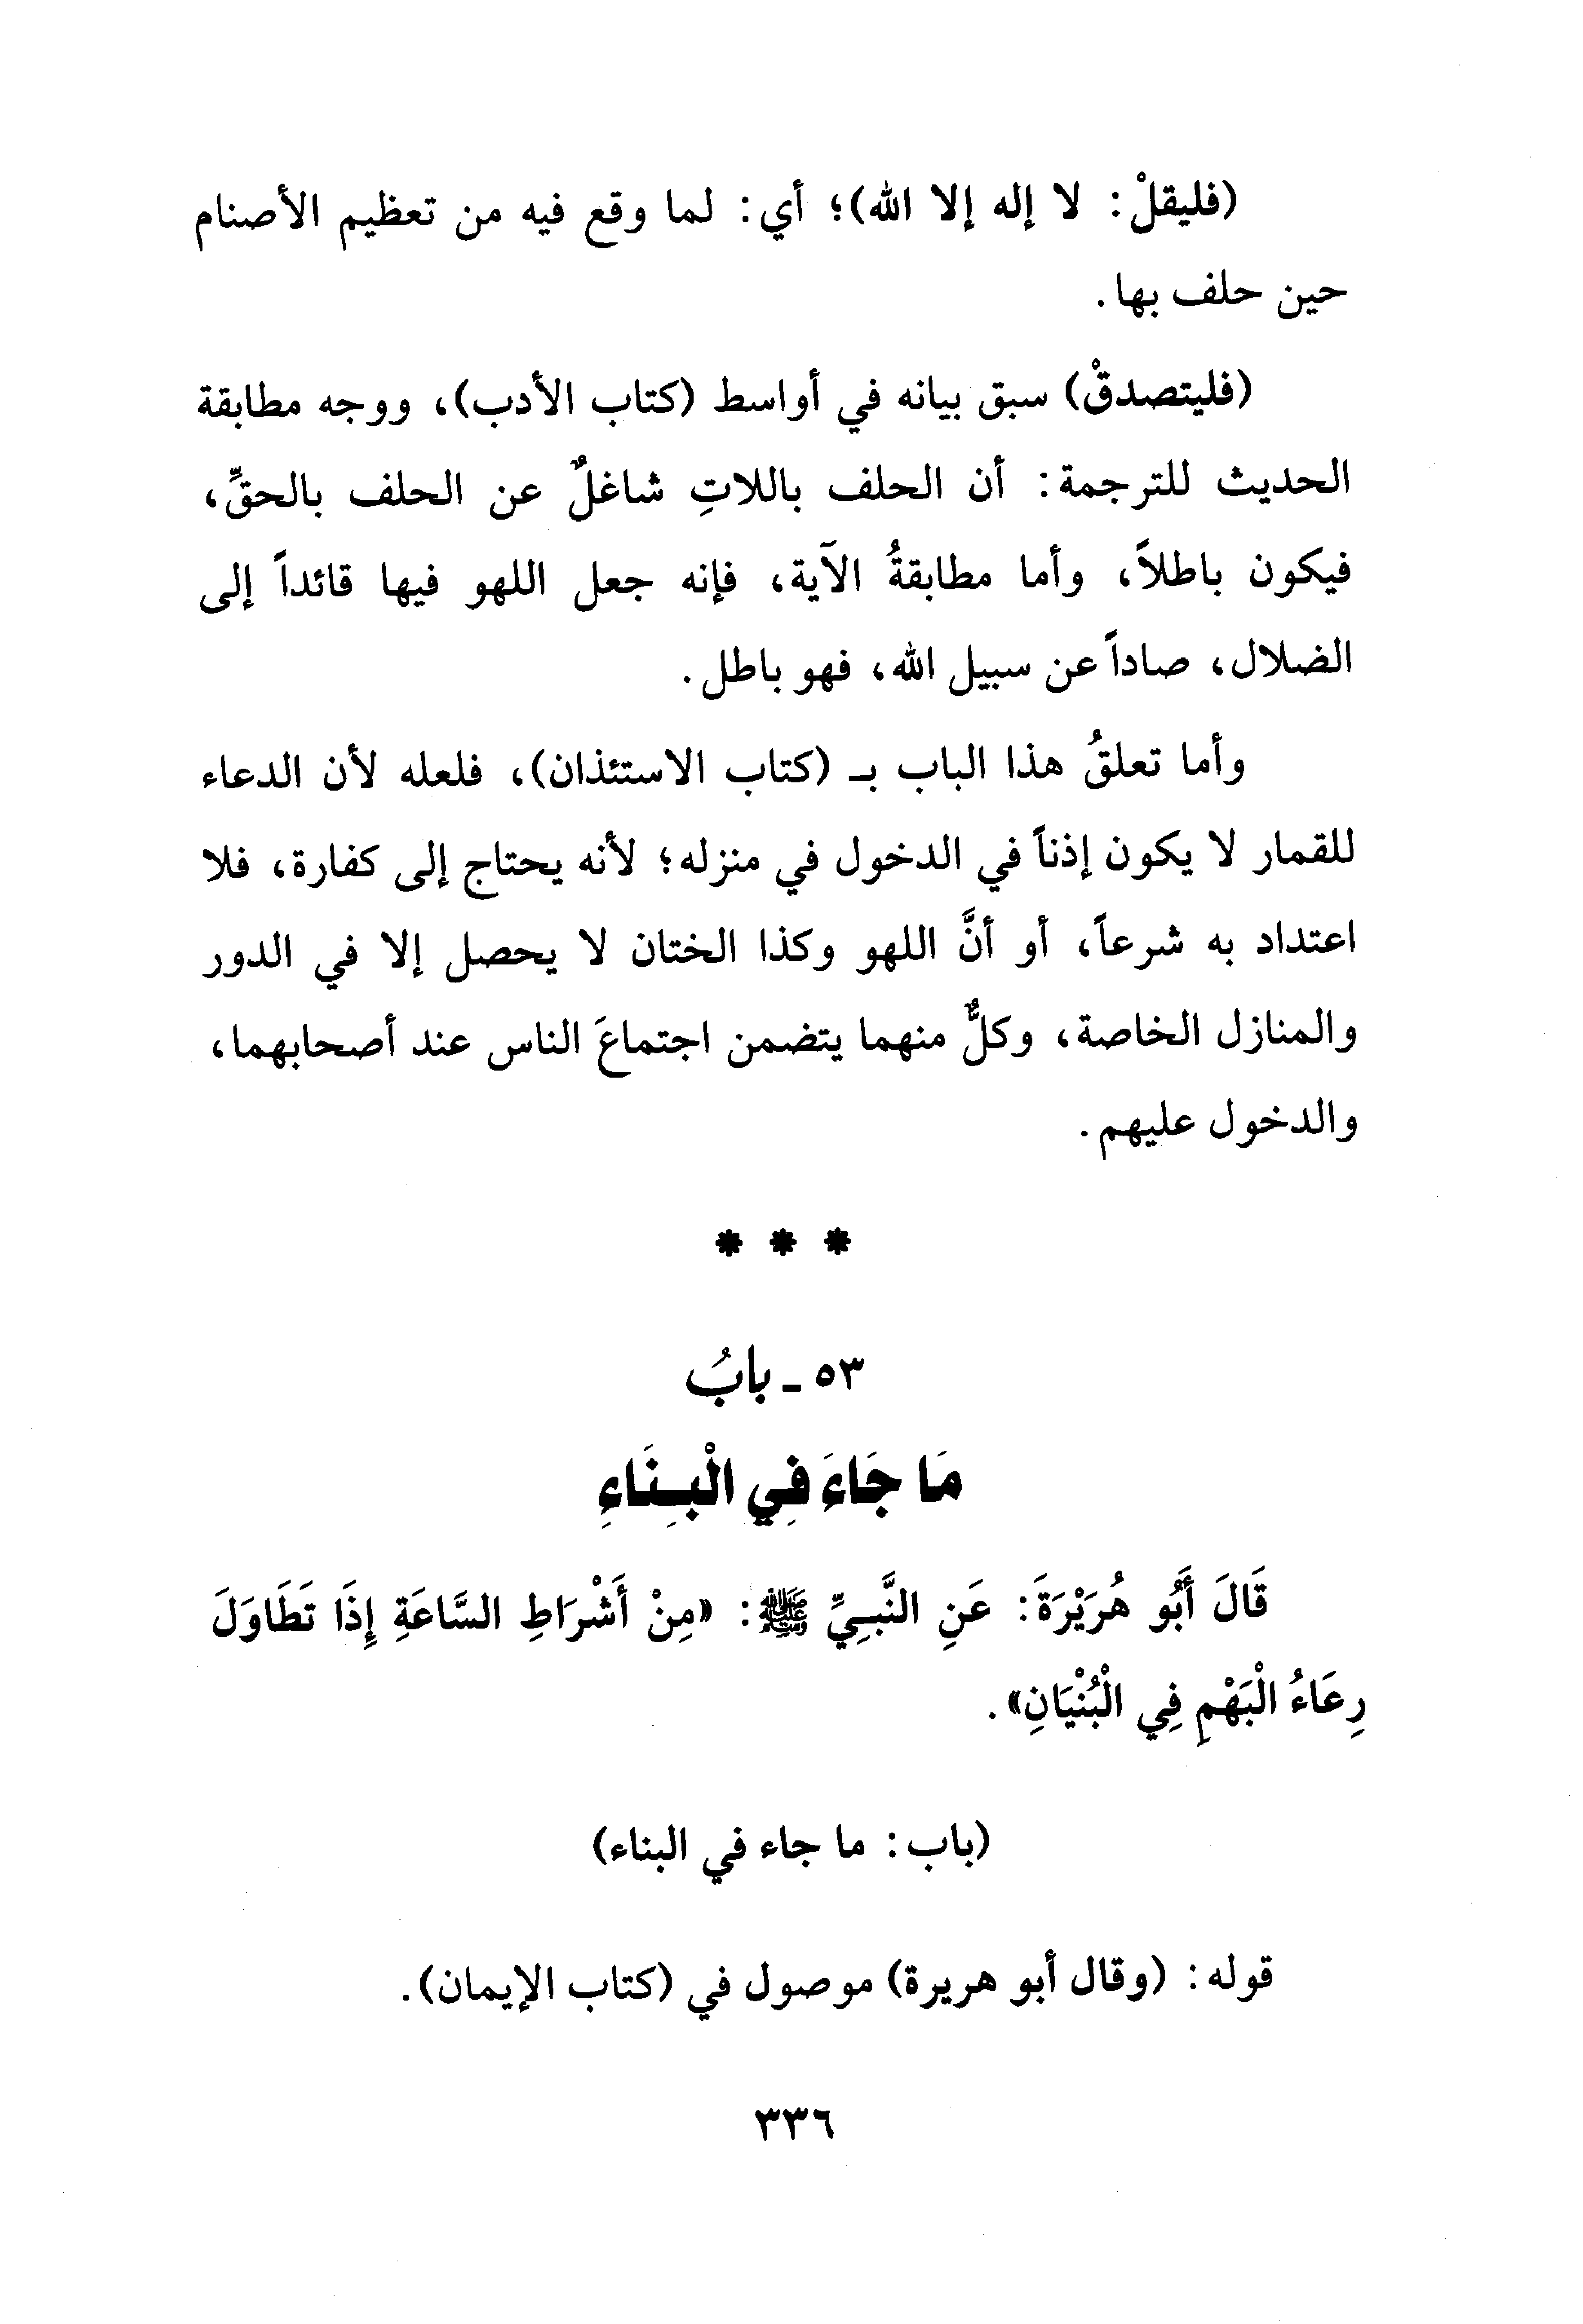 (فليقلْ: لا إله إلا الله)؛ أي: لما وقع فيه من تعظيم الأصنام
حين حلف بها.
(فليتصدقْ) سبق بيانه في أواسط (كتاب الأدب)، ووجه مطابقة
الحديث للترجمة: أن الحلف باللاتِ شاغلٌ عن الحلف بالحقِّ،
فيكون باطلاً، وأما مطابقةُ الآية، فإنه جعل اللهو فيها قائداً إلى
الضلال، صاداً عن سبيل الله، فهو باطل.
وأما تعلقُ هذا الباب بـ (كتاب الاستئذان)، فلعله لأن الدعاء
للقمار لا يكون إذناً في الدخول في منزله؛ لأنه يحتاج إلى كفارة، فلا
اعتداد به شرعاً، أو أنَّ اللهو وكذا الختان لا يحصل إلا في الدور
والمنازل الخاصة، وكلٌّ منهما يتضمن اجتماعَ الناس عند أصحابهما،
والدخول عليهم.
* * *
٥٣ - بابُ
مَا جَاءَ فِي الْبِنَاءِ
قَالَ أَبُو هُرَيْرَةَ: عَنِ النَّبِيِّ ﷺ: «مِنْ أَشْرَاطِ السَّاعَةِ إِذَا تَطَاوَلَ
رِعَاءُ الْبَهْمِ فِي الْبُنْيَانِ».
(باب: ما جاء في البناء)
قوله: (وقال أبو هريرة) موصول في (كتاب الإيمان).
٣٣٦